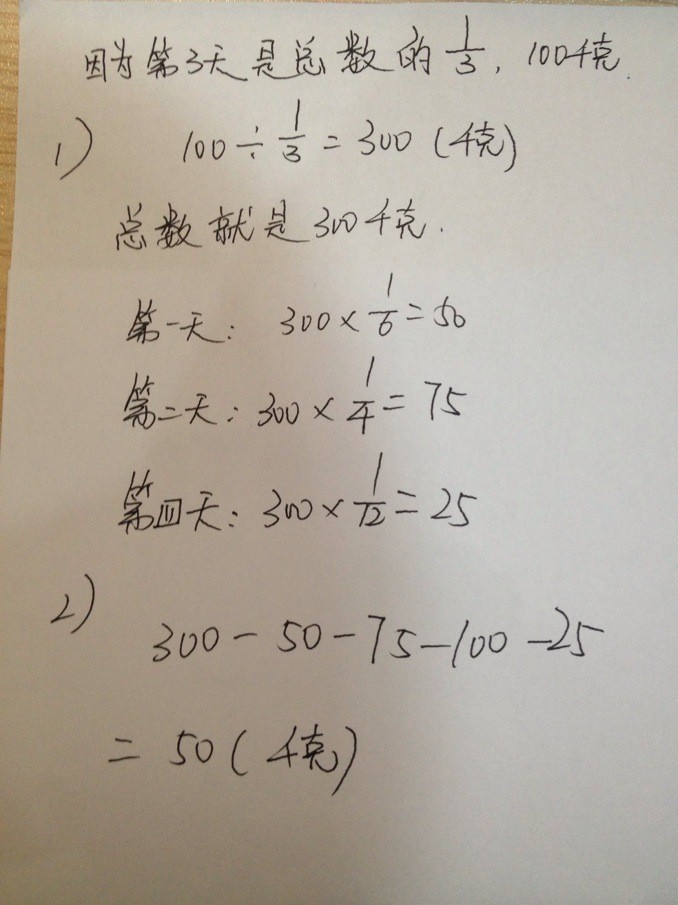 因为第3天是总数的1/3，100千克.
1) 100÷1/3=300(千克)
总数就是300千克.
第一天：300×1/6=50
第二天：300×1/4=75
第四天：300×1/12=25
2) 300-50-75-100-25
=50(千克)